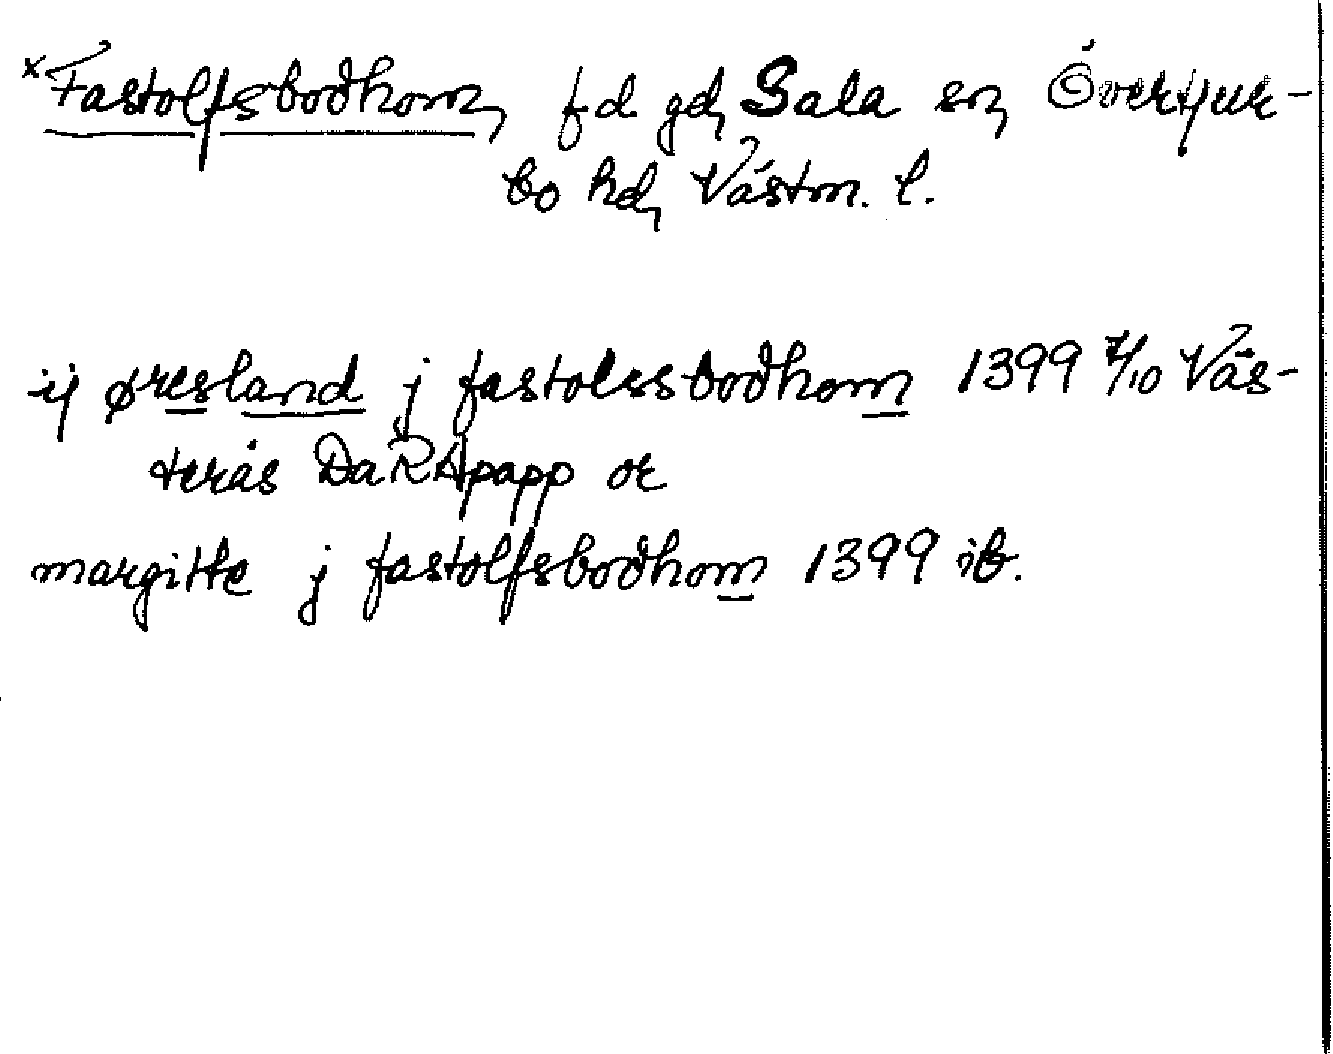 ×Fastolfsboðhom, f d gd, Sala sn, Övertjur-
bo hd, Västm. l.
ij øresland j fastolssboðhom 1399 7/10 Väs-
terås DaRApapp or
margitte j fastolfsboðhom 1399 ib.